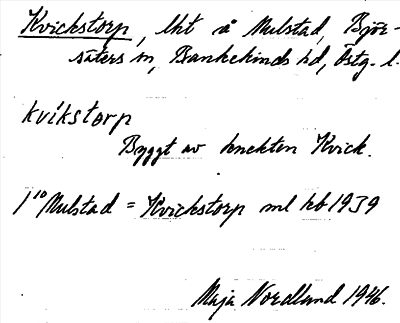 Kvickstorp, lht å Mulstad, Björ-
säters sn, Bankekinds hd, Östg. l.
kvikstorp
Byggt av knekten Kvick.
1¹⁰ Mulstad = Kvickstorp enl kb 1939
Maja Nordlund 1946.